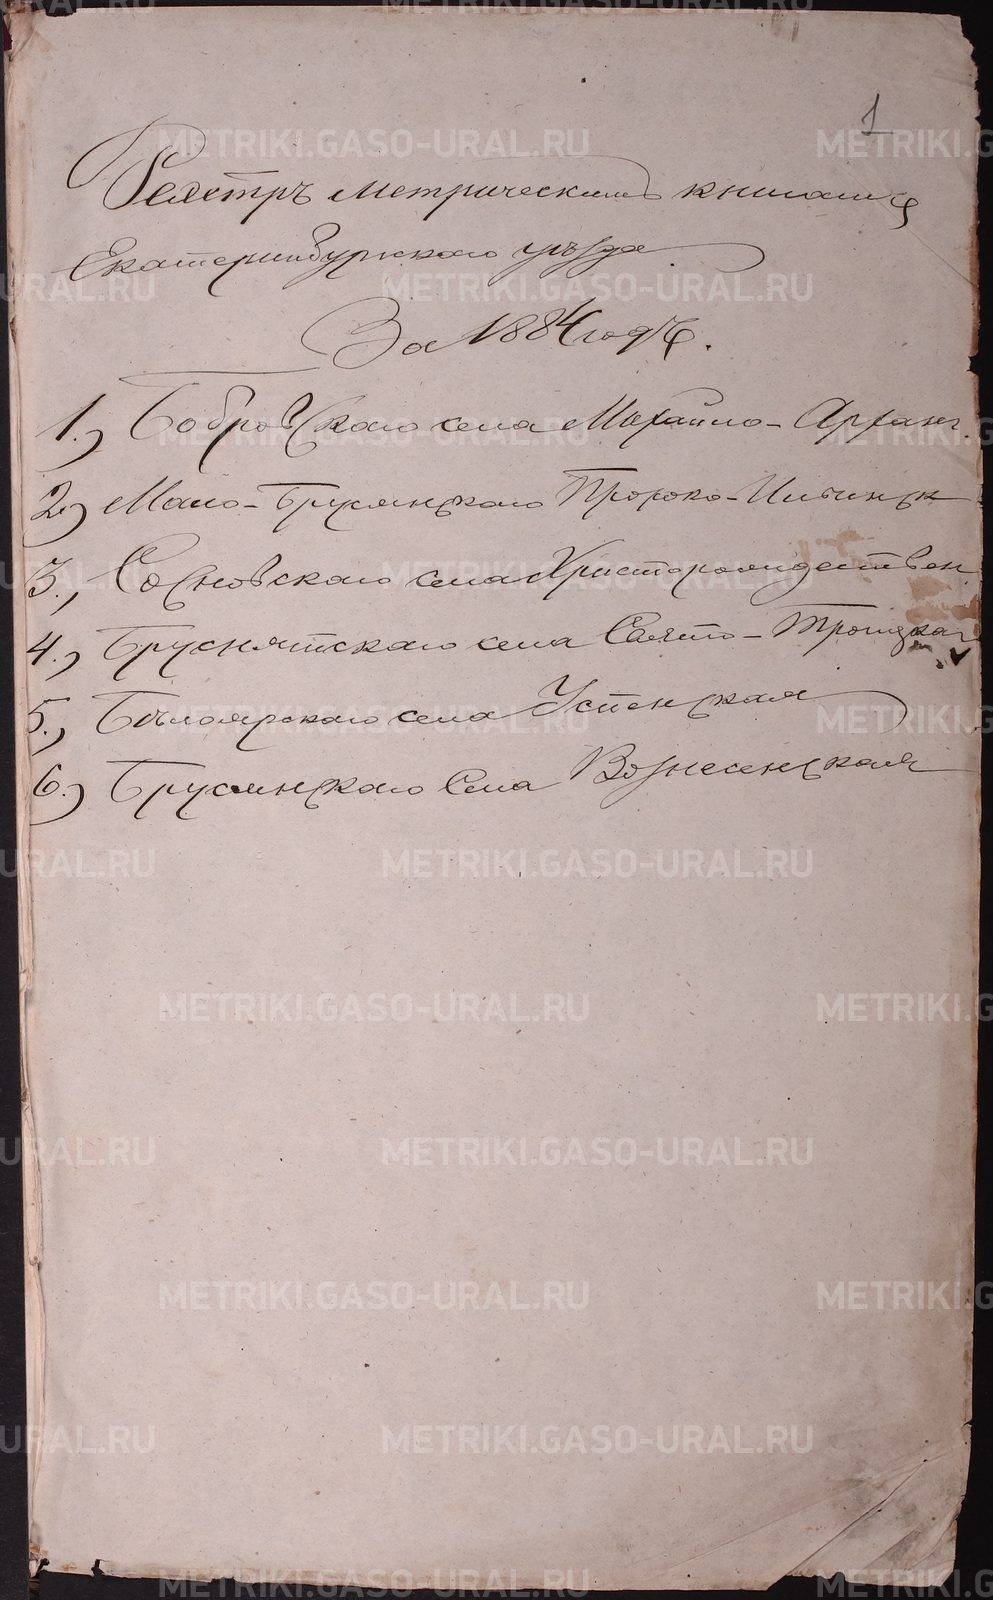 1
Реестръ метрическимъ книгамъ
Екатеринбургскаго уѣзда
За 1884 годъ.
1.) Бобровскаго села Михайло-Арханг.
2.) Мало-Брусянскаго Пророко-Ильинск
3.) Сосновскаго села Христорождествен
4.) Бруснятскаго села Свято-Троицкая
5.) Бѣлоярскаго села Успенская
6.) Брусянскаго Села Вознесенская
METRIKI.GASO-URAL.RU